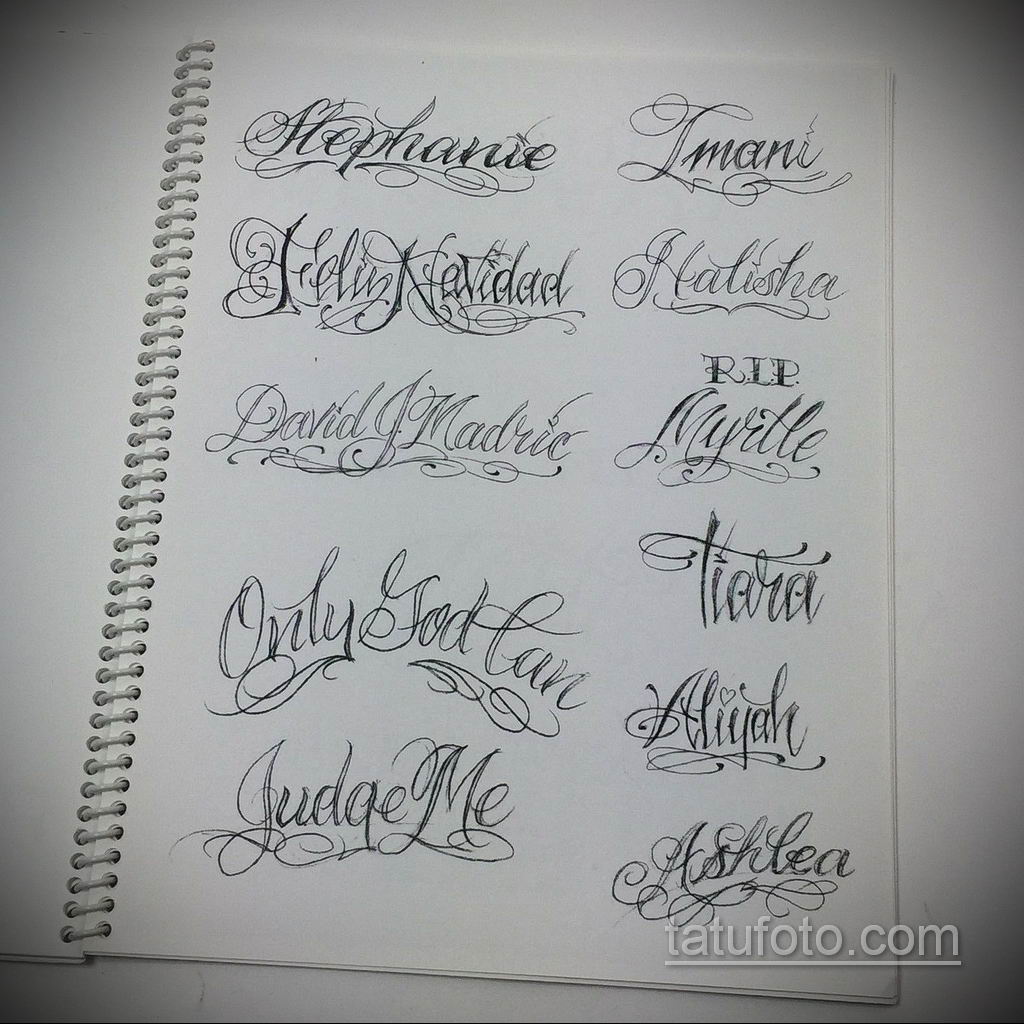 Stephanie
Feliz Navidad
David J Madric
Only God Can
Judge Me
Imani
Nalisha
R.I.P.
Myrtle
Tiara
Aliyah
Ashlea
tatufoto.com